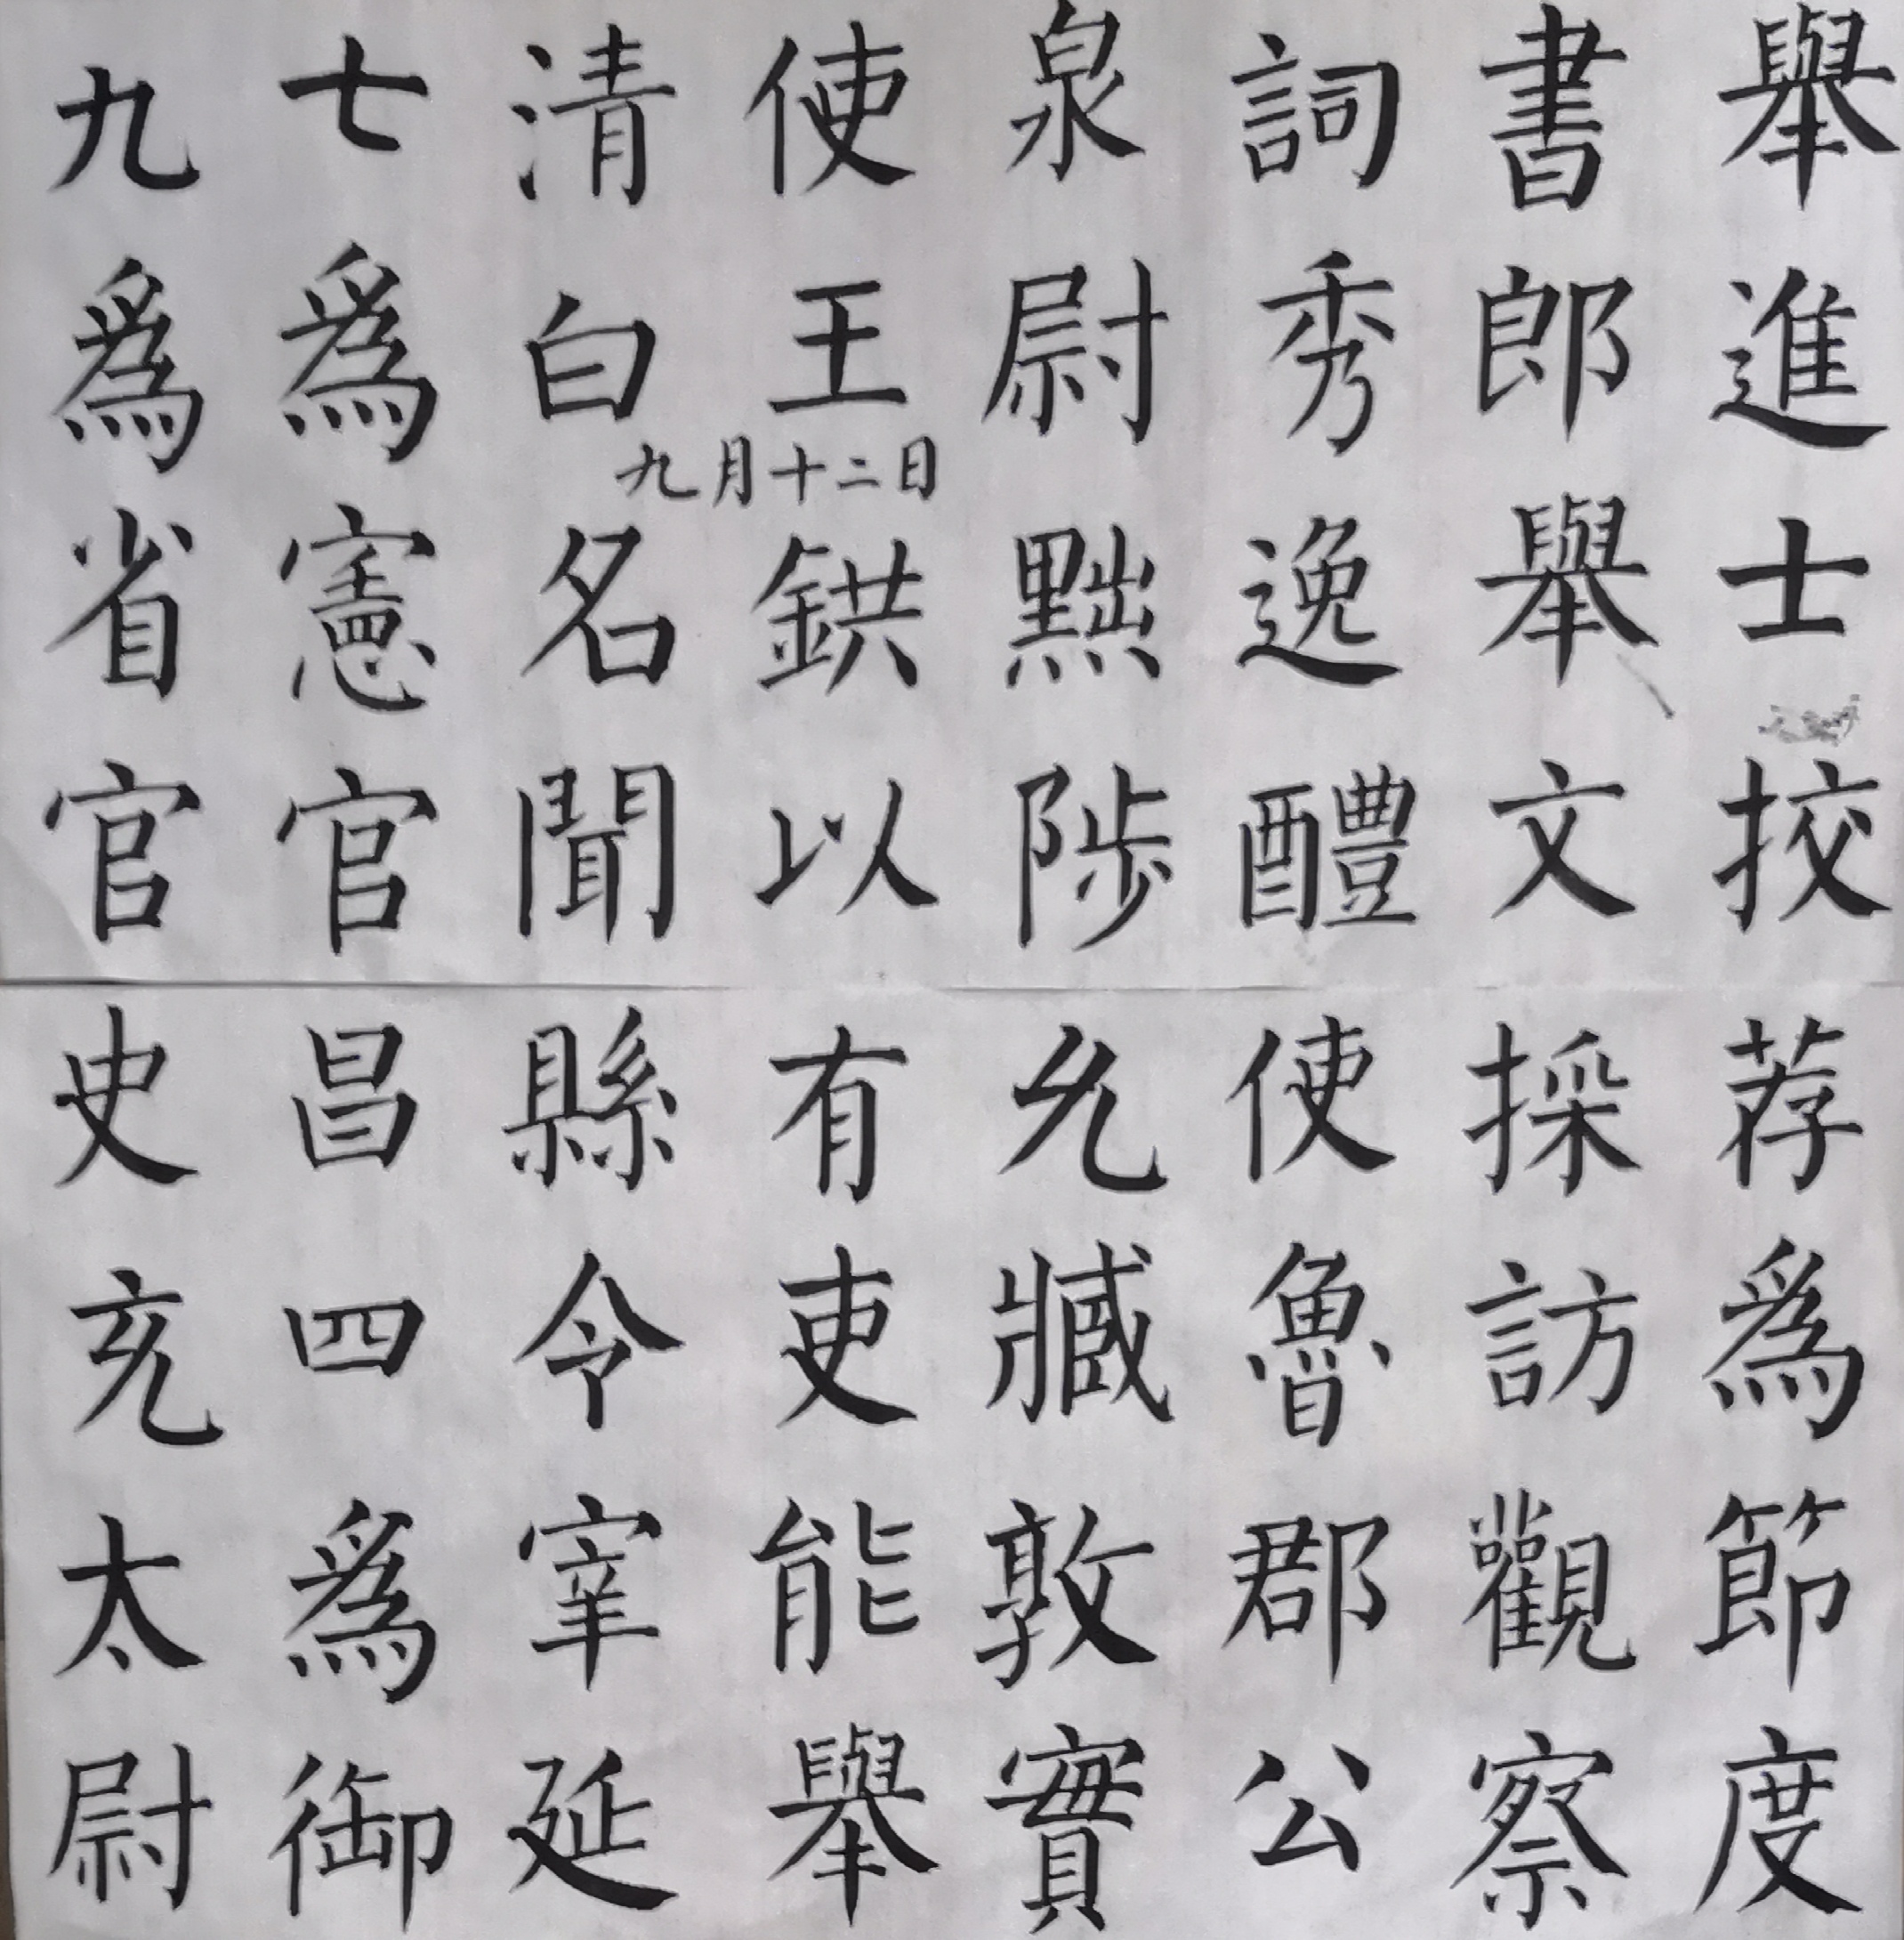 舉進士挍
書郎舉文
詞秀逸醴
泉尉黜陟
使王鉷以
清白名聞
七爲憲官
九爲省官
九月十二日
荐爲節度
採訪觀察
使魯郡公
允臧敦實
有吏能舉
縣令宰延
昌四爲御
史充太尉